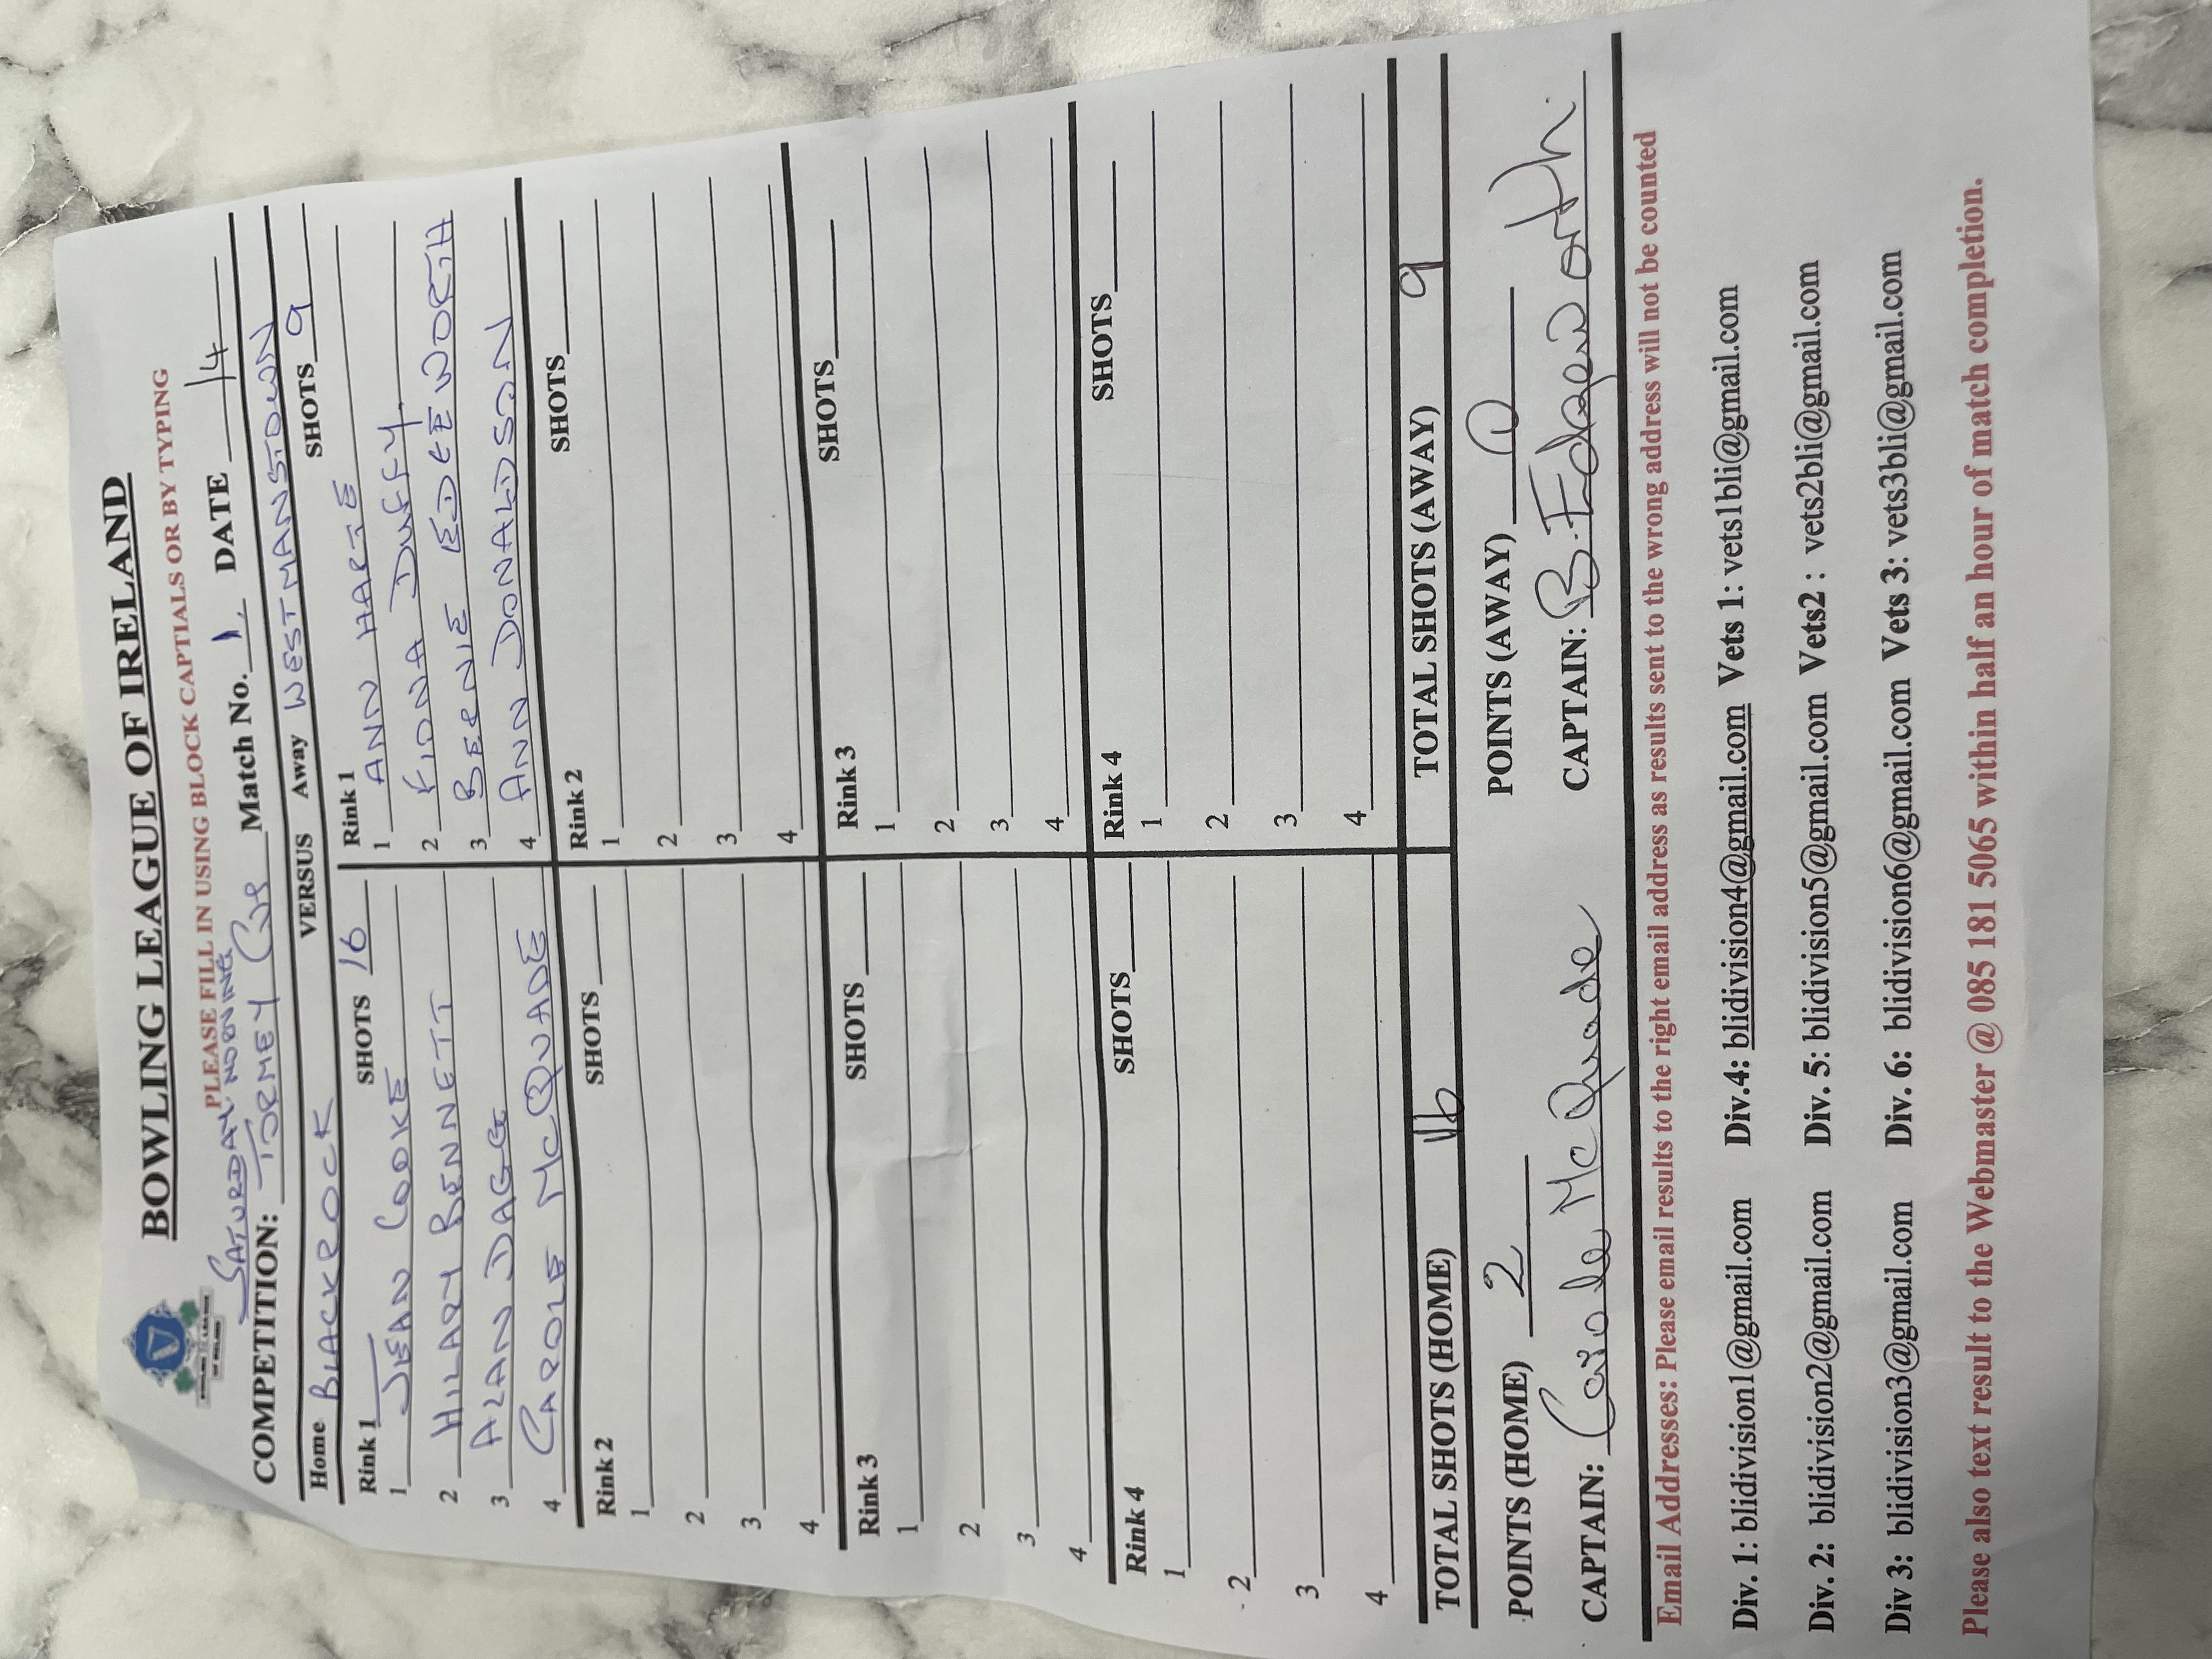 BOWLING LEAGUE OF IRELAND
PLEASE FILL IN USING BLOCK CAPTIALS OR BY TYPING
SATURDAY MORNING
COMPETITION: TORMEY CUP Match No. 1. DATE 1/4
Home BLACKROCK VERSUS Away WESTMANSTOWN
Rink 1 SHOTS 16 Rink 1 SHOTS 9
1 JEAN COOKE 1 ANN HARTE
2 HILARY BENNETT 2 FIONA DUFFY
3 ALAN DAGG 3 BERNIE EDGEWORTH
4 CAROLE McQUADE 4 ANN DONALDSON
Rink 2 SHOTS Rink 2 SHOTS
1 1
2 2
3 3
4 4
Rink 3 SHOTS Rink 3 SHOTS
1 1
2 2
3 3
4 4
Rink 4 SHOTS Rink 4 SHOTS
1 1
2 2
3 3
4 4
TOTAL SHOTS (HOME) 16 TOTAL SHOTS (AWAY) 9
POINTS (HOME) 2 POINTS (AWAY) 0
CAPTAIN: Carole McQuade CAPTAIN: B. Edgeworth.
Email Addresses: Please email results to the right email address as results sent to the wrong address will not be counted
Div. 1: blidivision1@gmail.com Div.4: blidivision4@gmail.com Vets 1: vets1bli@gmail.com
Div. 2: blidivision2@gmail.com Div. 5: blidivision5@gmail.com Vets2 : vets2bli@gmail.com
Div 3: blidivision3@gmail.com Div. 6: blidivision6@gmail.com Vets 3: vets3bli@gmail.com
Please also text result to the Webmaster @ 085 181 5065 within half an hour of match completion.